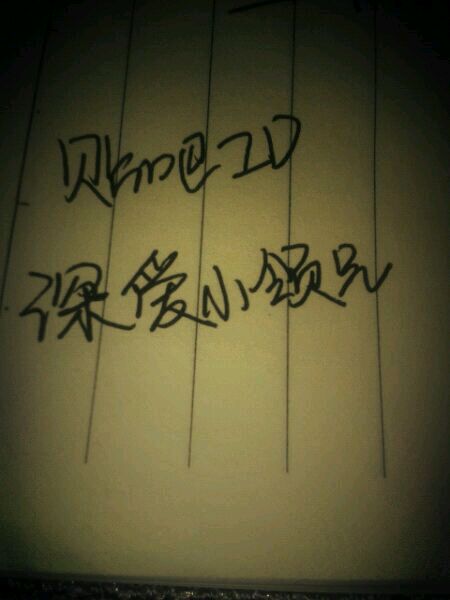 贴吧ID
深爱小领兄